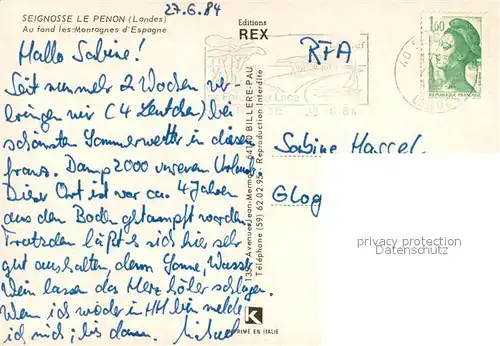 27.6.84
SEIGNOSSE LE PENON (Landes)
Au fond les Montagnes d'Espagne
Hallo Sabine!
Seit nunmehr 2 Wochen ver-
bringen wir (4 Leutchen) bei
schönstem Sommerwetter in diesem
franz. Damp 2000 unseren Urlaub.
Dieser Ort ist vor ca. 4 Jahren
aus dem Boden gestampft worden.
Trotzdem läßt es sich hier sehr
gut aushalten, denn Sonne, Wasser
Wein lassen das Herz höher schlagen.
Wenn ich wieder in HH bin melde
ich mich; bis dann.
Editions
REX
1395, Avenue Jean-Mermoz 64140 BILLERE-PAU
Téléphone (59) 62.02.95 - Reproduction Interdite
K
IMPRIMÉ EN ITALIE
RFA
40
1,60
REPUBLIQUE FRANÇAISE
Sabine
Glog
privacy protection
DatenSchutz